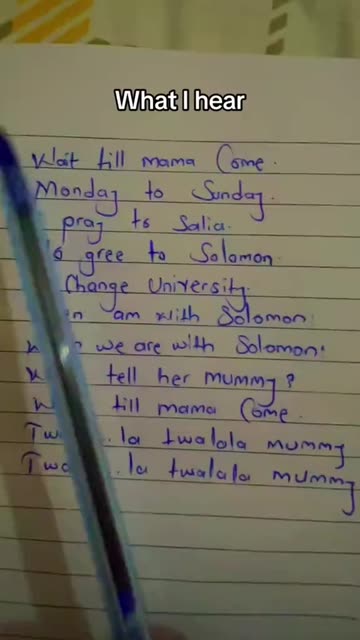 What I hear
Wait till mama Come.
Monday to Sunday.
pray to Salia.
gree to Solomon
Change University.
am with Solomon.
we are with Solomon.
tell her mummy?
till mama Come.
la twalala mummy
la twalala mummy